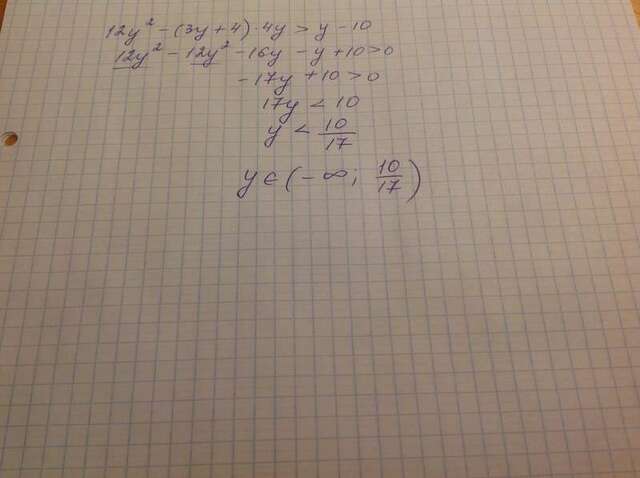 12y² - (3y + 4) · 4y > y - 10
12y² - 12y² - 16y - y + 10 > 0
- 17y + 10 > 0
17y < 10
y < 10/17
y ∈ (- ∞; 10/17)